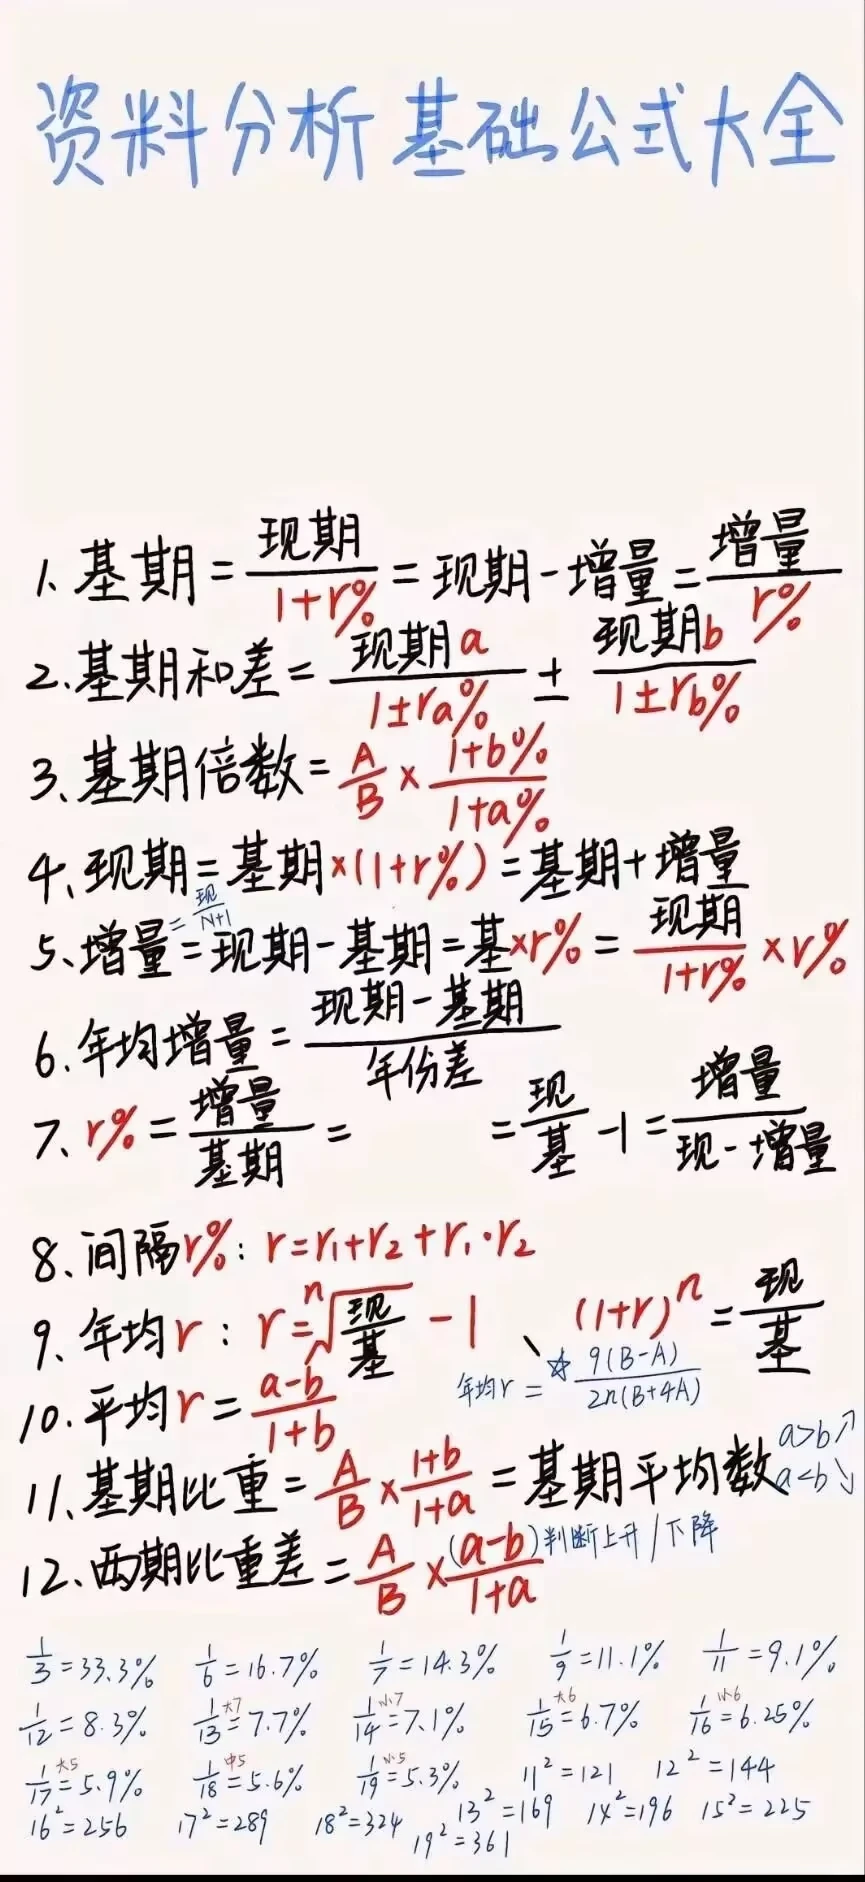 资料分析基础公式大全
1、基期=现期/1+r%=现期-增量=增量/r%
2、基期和差=现期a/1±ra%±现期b/1±rb%
3、基期倍数=A/B×1+b%/1+a%
4、现期=基期×(1+r%)=基期+增量
5、增量=现/N+1=现期-基期=基×r%=现期/1+r%×r%
6、年均增量=现期-基期/年份差
7、r%=增量/基期= =现/基-1=增量/现-增量
8、间隔r%:r=r₁+r₂+r₁·r₂
9、年均r:r=ⁿ√现/基-1、(1+r)ⁿ=现/基
年均r=☆9(B-A)/2n(B+4A)
10.平均r=a-b/1+b
11、基期比重=A/B×1+b/1+a=基期平均数 a>b↗ a<b↘
12、两期比重差=A/B×(a-b)/1+a 判断上升/下降
1/3=33.3% 1/6=16.7% 1/7=14.3% 1/9=11.1% 1/11=9.1%
1/12=8.3% 1/13大7=7.7% 1/14小7=7.1% 1/15大6=6.7% 1/16小6=6.25%
1/17大5=5.9% 1/18中5=5.6% 1/19小5=5.3% 11²=121 12²=144
16²=256 17²=289 18²=324 13²=169 14²=196 15²=225
19²=361